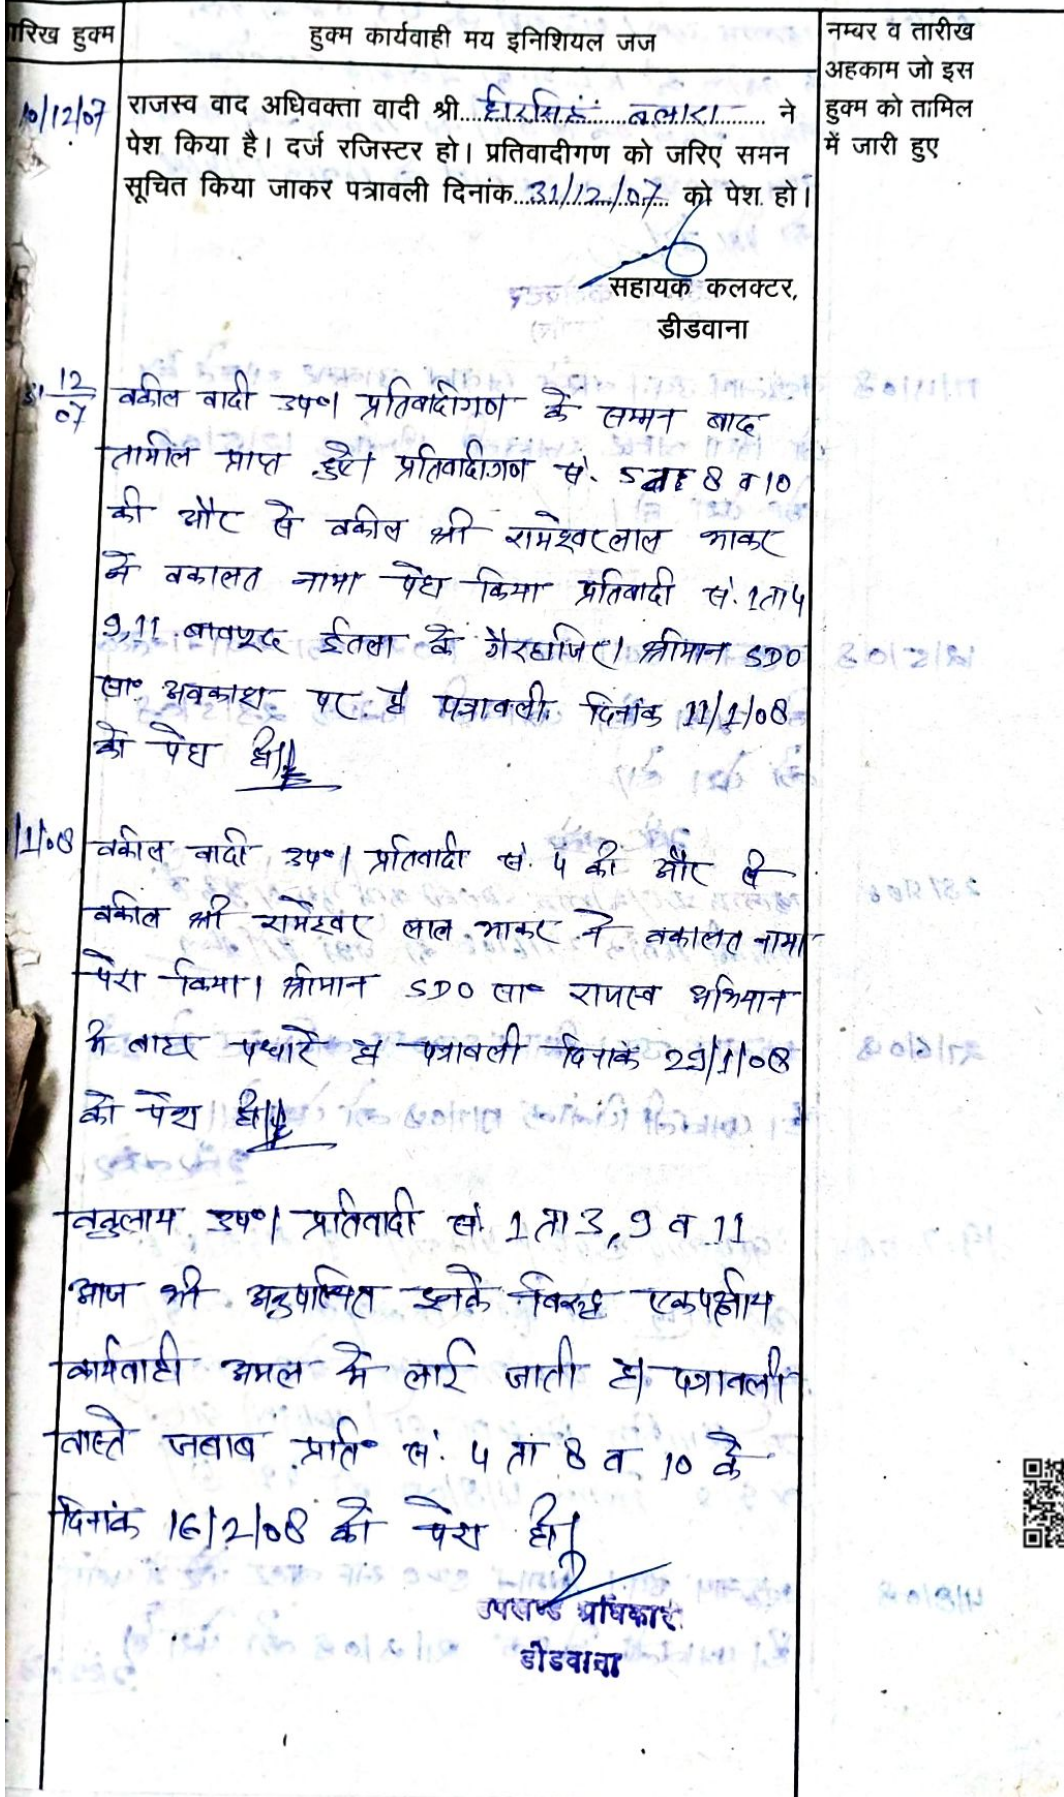 तारिख हुक्म
हुक्म कार्यवाही मय इनिशियल जज
नम्बर व तारीख
अहकाम जो इस
हुक्म को तामिल
में जारी हुए
10/12/07
राजस्व वाद अधिवक्ता वादी श्री.... ने
पेश किया है। दर्ज रजिस्टर हो। प्रतिवादीगण को जरिए समन
सूचित किया जाकर पत्रावली दिनांक...31/12/07... को पेश हो।
सहायक कलक्टर,
डीडवाना
31 12/07
वकील वादी उप०। प्रतिवादीगण के सम्मन बाद
तामील प्राप्त हुऐ। प्रतिवादीगण सं. 5 8 व 10
की और से वकील श्री रामेश्वरलाल भाकर
ने वकालत नामा पेश किया प्रतिवादी सं. 1 ता 4
9,11 बावजूद ईतला के गैरहाजिर। श्रीमान SDO
सा० अवकाश पर है पत्रावली दिनांक 11/1/08
को पेश हो।
/1/08
वकील वादी उप०। प्रतिवादी सं. 4 की और से
वकील श्री रामेश्वर लाल भाकर ने वकालत नामा
पेश किया। श्रीमान SDO सा० राजस्व अभियान
मे बाहर पधारे है पत्रावली दिनांक 29/1/08
को पेश हो।
उप०। प्रतिवादी सं. 1 ता 3, 9 व 11
आज भी अनुपस्थित इनके विरुद्ध एकपक्षीय
कार्यवाही अमल मे लाई जाती है। पत्रावली
वास्ते जबाब प्रति० सं. 4 ता 8 व 10 के
दिनांक 16/2/08 को पेश हो।
उपखण्ड अधिकारी
डीडवाना